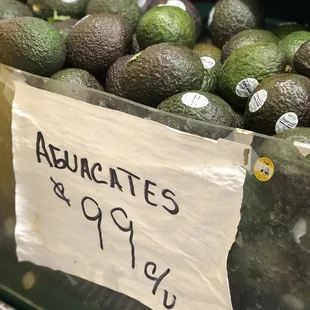 AGUACATES
¢99 c/u